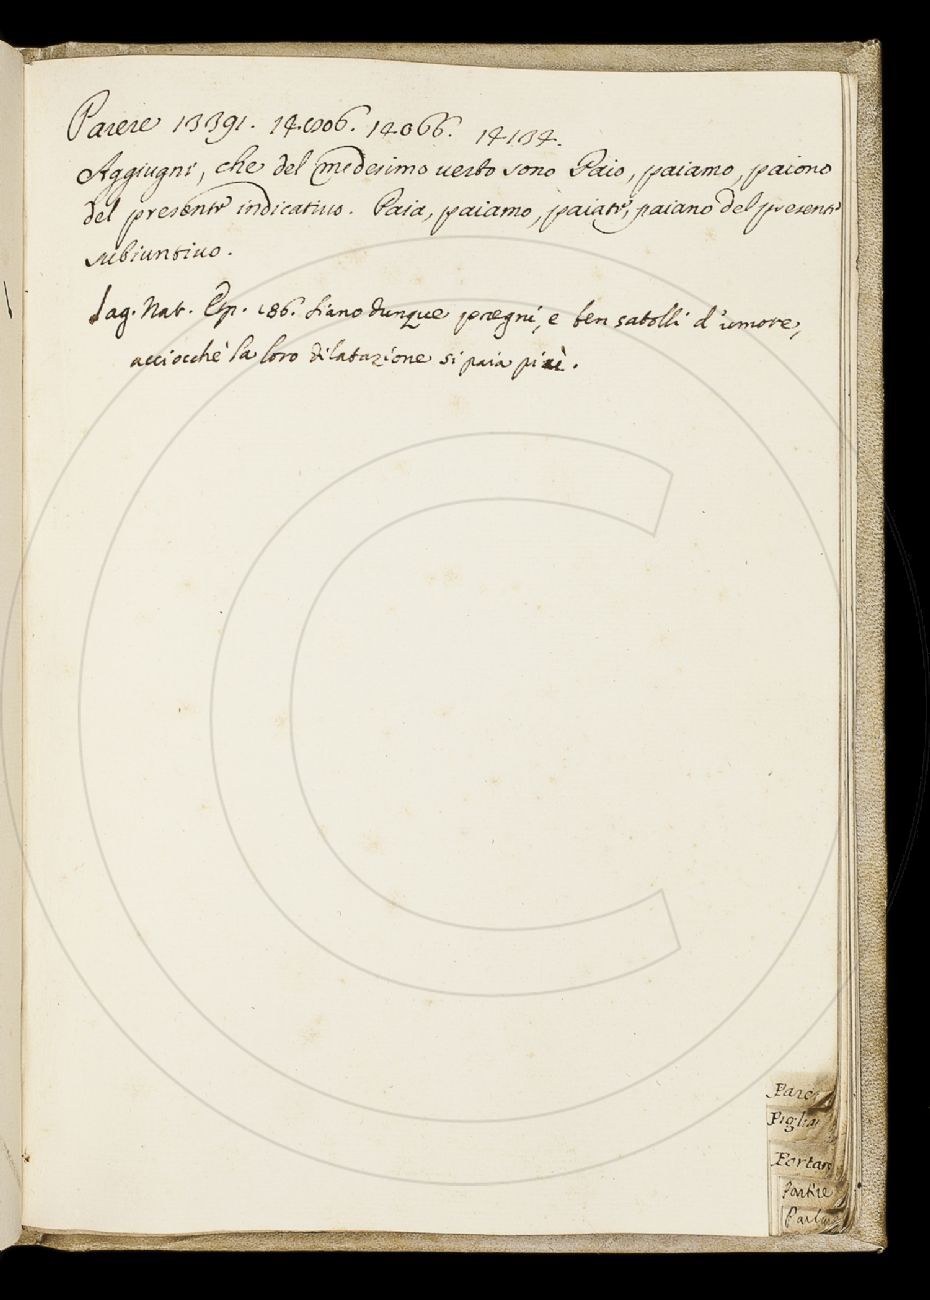 Parere 13391. 14006. 14066. 14134.
Aggiugni, che del medesimo verbo sono Paio, paiamo, paiono
del presente indicativo. Paia, paiamo, paiate, paiano del presente
subiuntivo.
Sag. Nat. Esp. 186. Siano dunque pregni, e ben satolli d'umore,
acciocchè la loro dilatazione si paia più.
Pare
Piglia
Portar
Partire
Parla